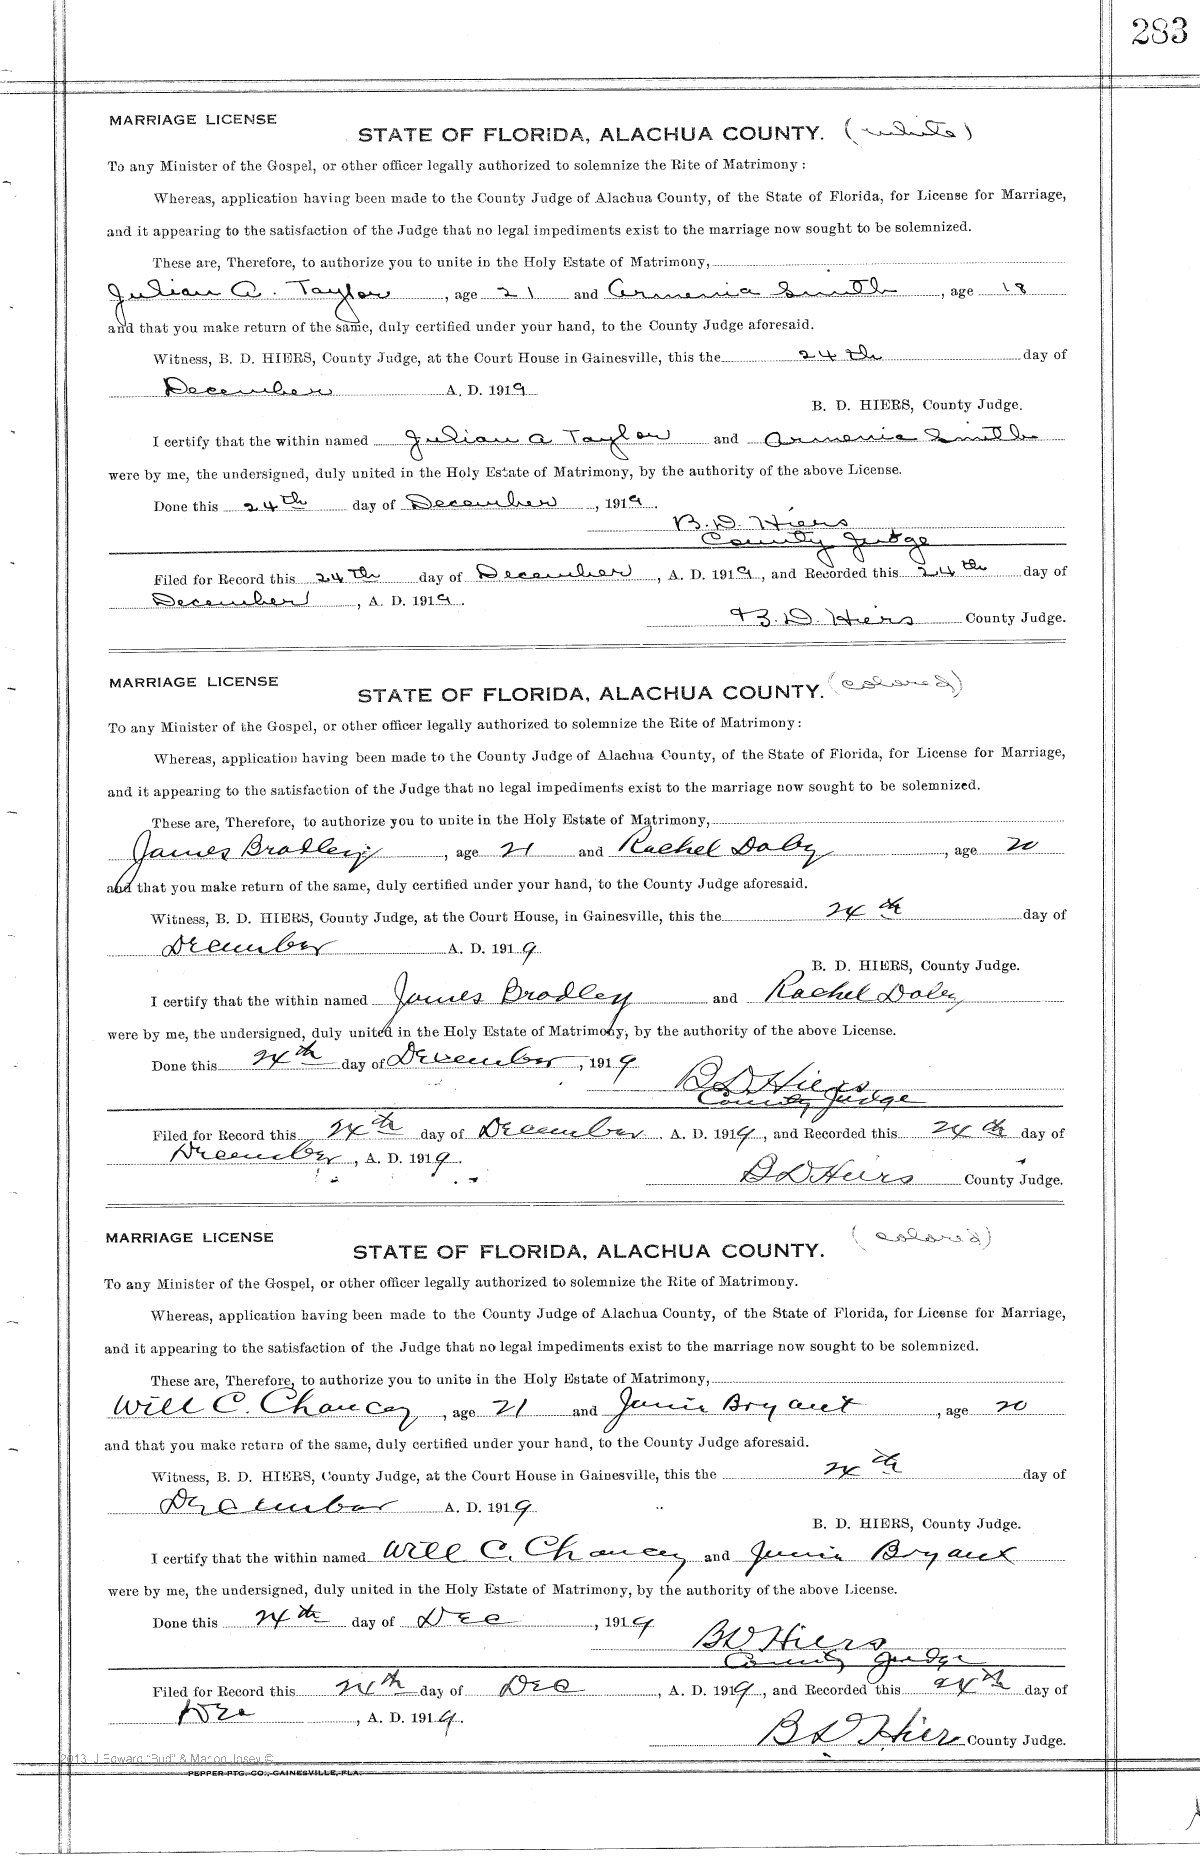 283
MARRIAGE LICENSE
STATE OF FLORIDA, ALACHUA COUNTY. (white)
To any Minister of the Gospel, or other officer legally authorized to solemnize the Rite of Matrimony:
Whereas, application having been made to the County Judge of Alachua County, of the State of Florida, for License for Marriage,
and it appearing to the satisfaction of the Judge that no legal impediments exist to the marriage now sought to be solemnized.
These are, Therefore, to authorize you to unite in the Holy Estate of Matrimony,
Julian A. Taylor, age 21 and Armenia Smith, age 18
and that you make return of the same, duly certified under your hand, to the County Judge aforesaid.
Witness, B. D. HIERS, County Judge, at the Court House in Gainesville, this the 24th day of
December A. D. 1919
B. D. HIERS, County Judge.
I certify that the within named Julian A Taylor and Armenia Smith
were by me, the undersigned, duly united in the Holy Estate of Matrimony, by the authority of the above License.
Done this 24th day of December, 1919.
B. D. Hiers
County Judge
Filed for Record this 24th day of December, A. D. 1919, and Recorded this 24th day of
December, A. D. 1919.
B. D. Hiers County Judge.
MARRIAGE LICENSE
STATE OF FLORIDA, ALACHUA COUNTY. (colored)
To any Minister of the Gospel, or other officer legally authorized to solemnize the Rite of Matrimony:
Whereas, application having been made to the County Judge of Alachua County, of the State of Florida, for License for Marriage,
and it appearing to the satisfaction of the Judge that no legal impediments exist to the marriage now sought to be solemnized.
These are, Therefore, to authorize you to unite in the Holy Estate of Matrimony,
James Bradley, age 21 and Rachel Doby, age 20
and that you make return of the same, duly certified under your hand, to the County Judge aforesaid.
Witness, B. D. HIERS, County Judge, at the Court House, in Gainesville, this the 24th day of
December A. D. 1919
B. D. HIERS, County Judge.
I certify that the within named James Bradley and Rachel Doby
were by me, the undersigned, duly united in the Holy Estate of Matrimony, by the authority of the above License.
Done this 24th day of December, 1919
B D Hiers
County Judge
Filed for Record this 24th day of December. A. D. 1919, and Recorded this 24th day of
December, A. D. 1919.
B D Hiers County Judge.
MARRIAGE LICENSE
STATE OF FLORIDA, ALACHUA COUNTY. (colored)
To any Minister of the Gospel, or other officer legally authorized to solemnize the Rite of Matrimony.
Whereas, application having been made to the County Judge of Alachua County, of the State of Florida, for License for Marriage,
and it appearing to the satisfaction of the Judge that no legal impediments exist to the marriage now sought to be solemnized.
These are, Therefore, to authorize you to unite in the Holy Estate of Matrimony,
Will C. Chancey, age 21 and Junie Bryant, age 20
and that you make return of the same, duly certified under your hand, to the County Judge aforesaid.
Witness, B. D. HIERS, County Judge, at the Court House in Gainesville, this the 24th day of
December A. D. 1919
B. D. HIERS, County Judge.
I certify that the within named Will C. Chancey and Junie Bryant
were by me, the undersigned, duly united in the Holy Estate of Matrimony, by the authority of the above License.
Done this 24th day of Dec, 1919
B D Hiers
County Judge
Filed for Record this 24th day of Dec, A. D. 1919, and Recorded this 24th day of
Dec, A. D. 1919.
B D Hiers County Judge.
2013 J Edward "Bud" & Marion Josey ©
PEPPER PTG. CO., GAINESVILLE, FLA.